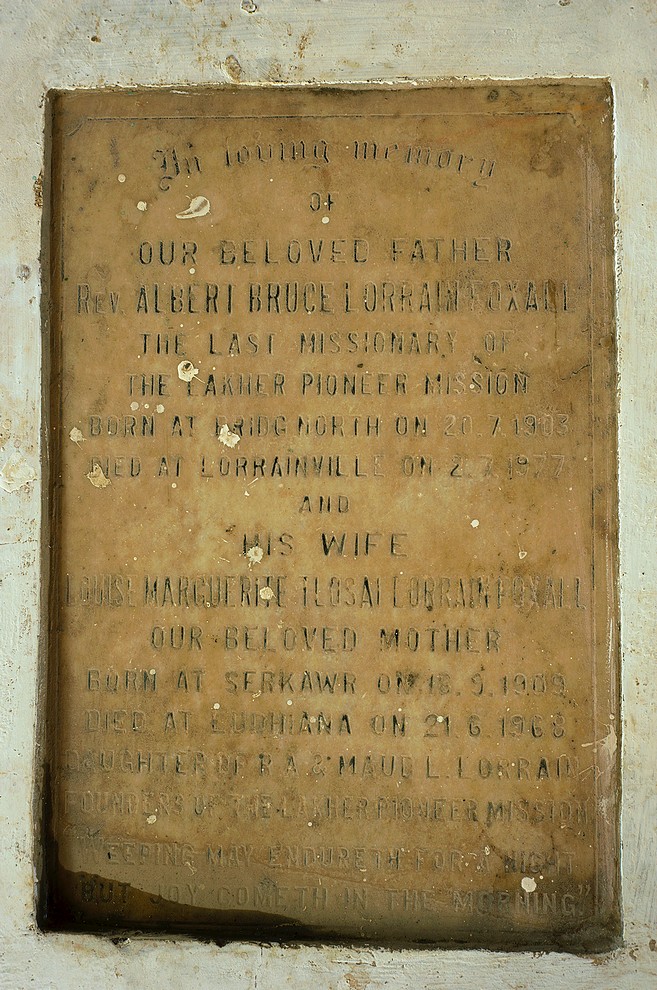 In loving memory
OF
OUR BELOVED FATHER
REV. ALBERT BRUCE LORRAIN FOXALL
THE LAST MISSIONARY OF
THE LAKHER PIONEER MISSION
BORN AT BRIDG NORTH ON 20.7.1903
DIED AT LORRAINVILLE ON 2.7.1977
AND
HIS WIFE
LOUISE MARGUERITE TLOSAI LORRAIN FOXALL
OUR BELOVED MOTHER
BORN AT SERKAWR ON 18.9.1909
DIED AT LUDHIANA ON 21.6.1968
DAUGHTER OF R.A & MAUD L. LORRAIN
FOUNDERS OF THE LAKHER PIONEER MISSION
"WEEPING MAY ENDURETH FOR A NIGHT
BUT JOY COMETH IN THE MORNING."